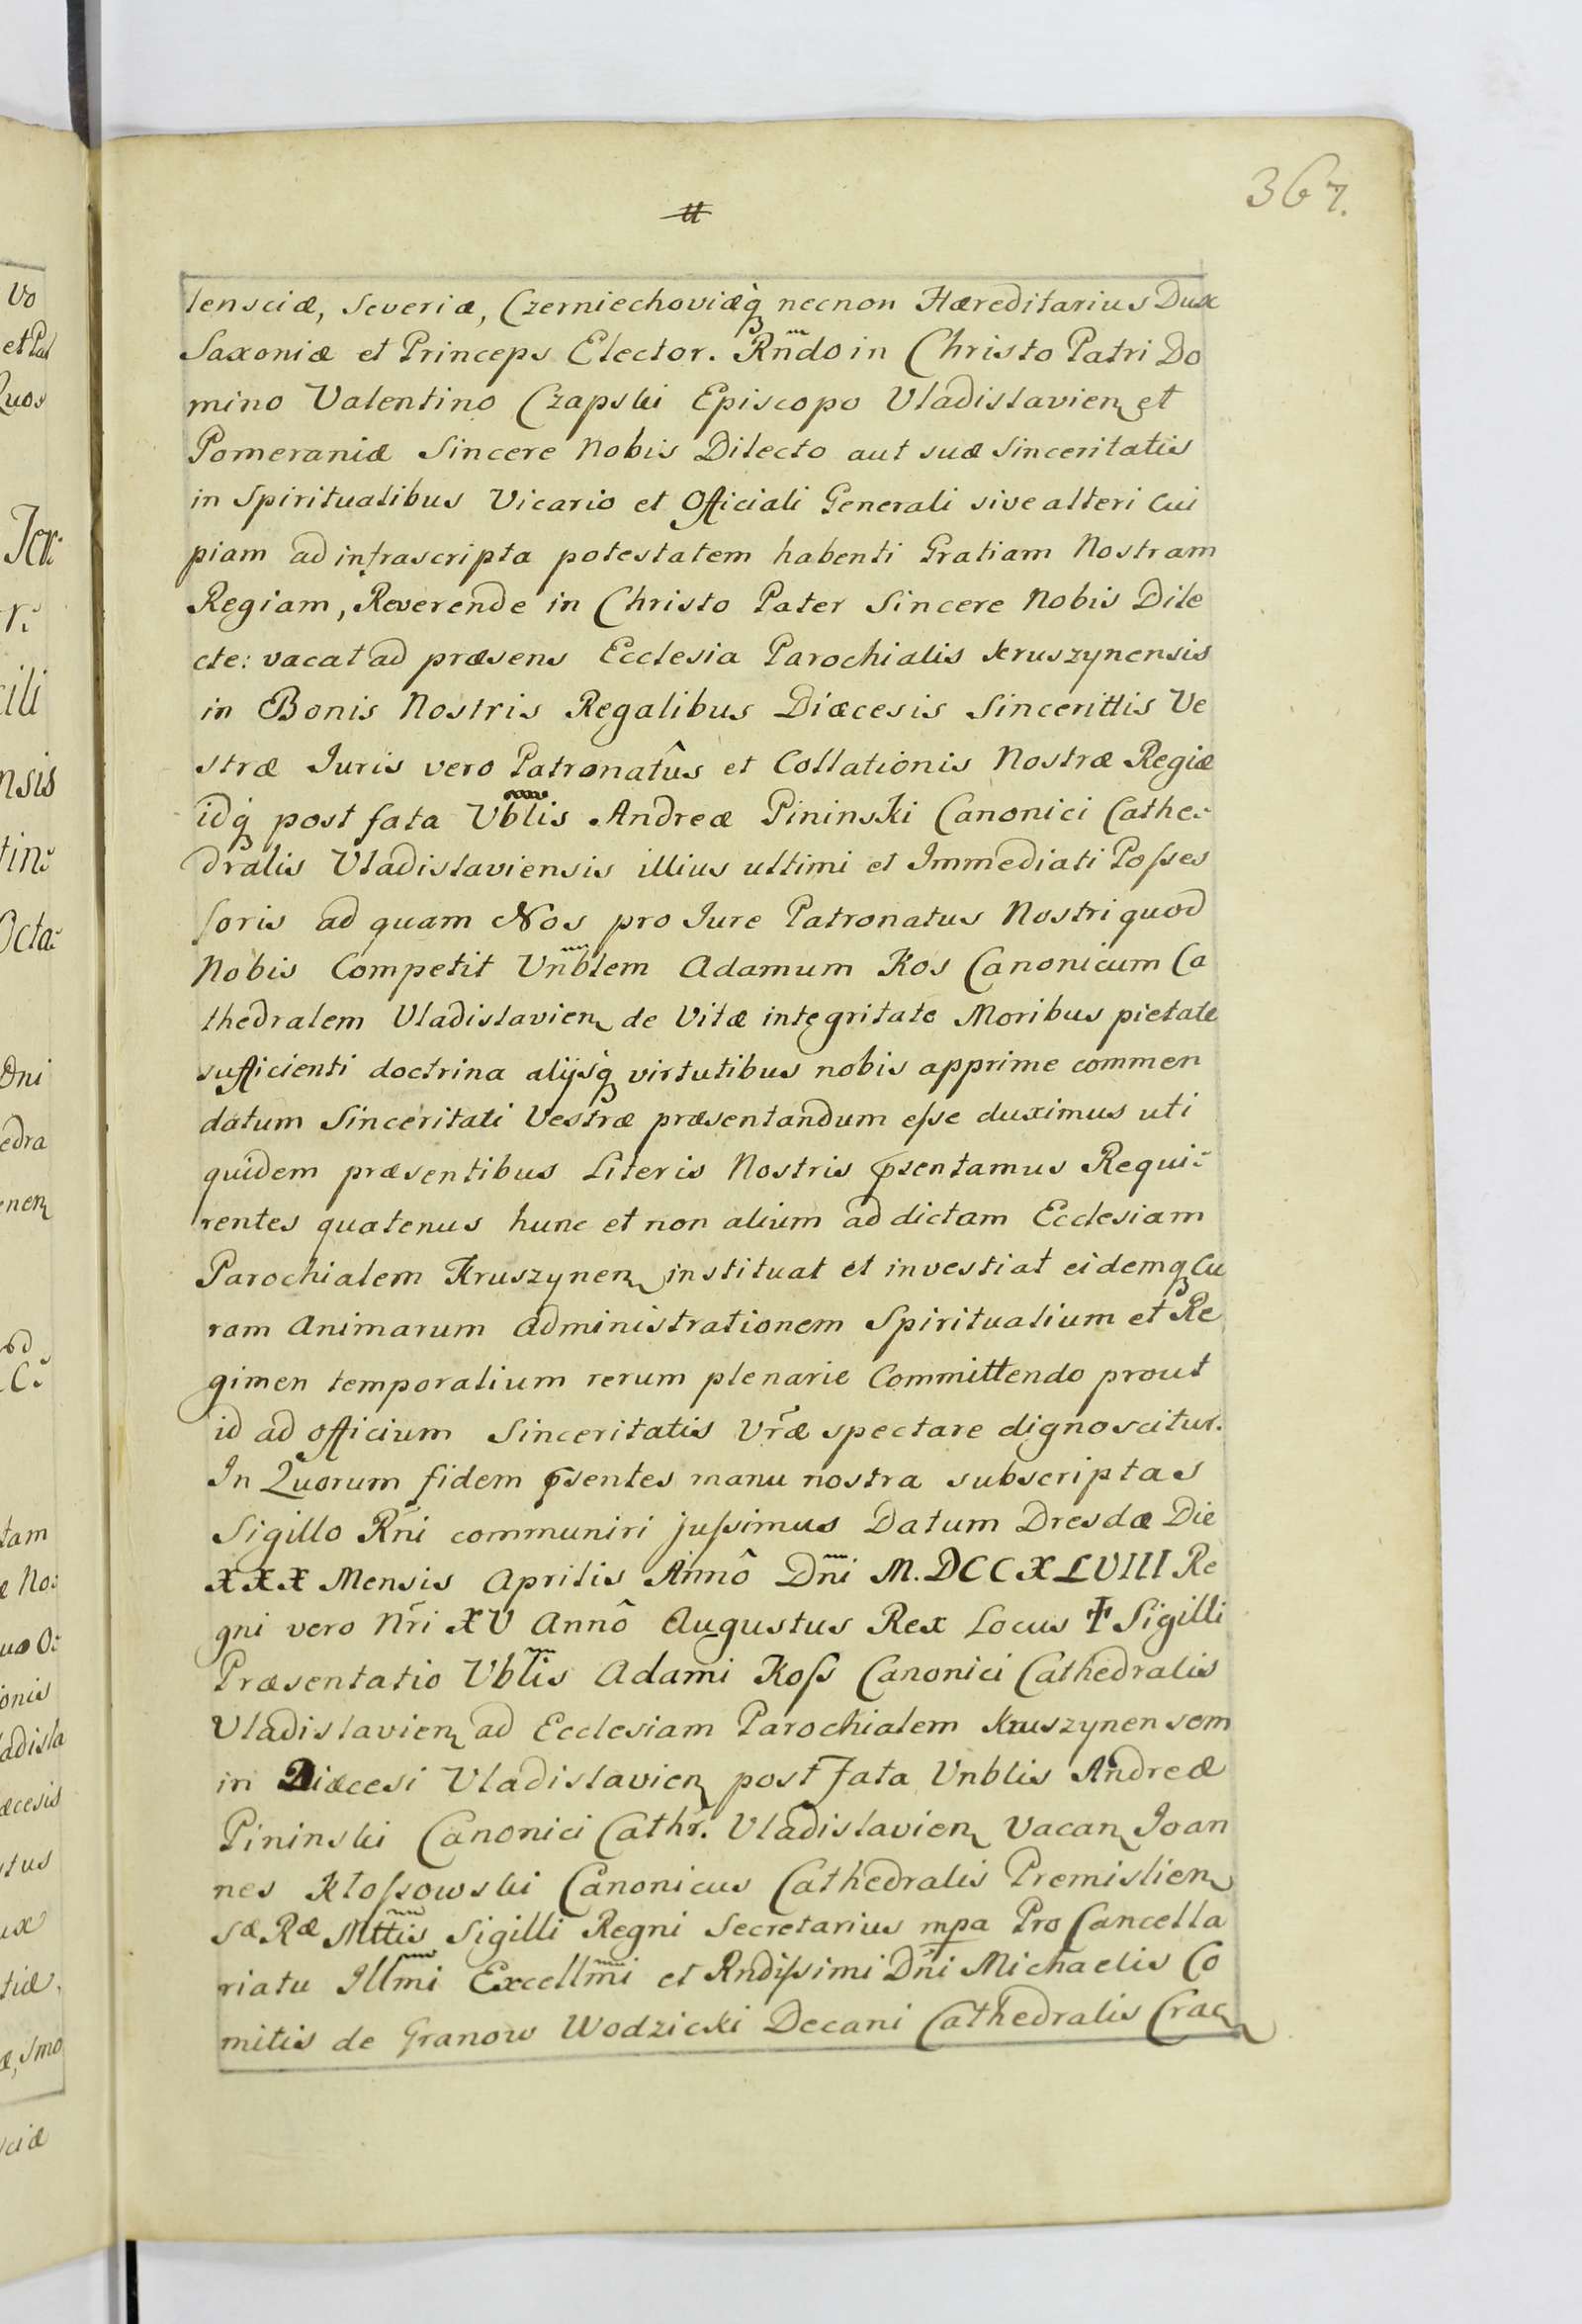 367.
lensciæ, Severiæ, Czerniechoviæq̃ necnon Hæreditarius Dux
Saxoniæ et Princeps Elector. Rñdo in Christo Patri Do
mino Valentino Czapski Episcopo Vladislavien et
Pomeraniæ Sincere Nobis Dilecto aut suæ Sinceritatis
in Spiritualibus Vicario et Officiali Generali sive alteri cui
piam ad infrascripta potestatem habenti Gratiam Nostram
Regiam, Reverende in Christo Pater Sincere Nobis Dile
cte: vacat ad præsens Ecclesia Parochialis Kruszynensis
in Bonis Nostris Regalibus Diæcesis Sincerittis Ve
stræ Iuris vero Patronatûs et Collationis Nostræ Regiæ
idq̃ post fata Vblis Andreæ Pininski Canonici Cathe:
dralis Vladislaviensis illius ultimi et Immediati Posses
soris ad quam Nos pro Iure Patronatus Nostri quod
Nobis Competit Vnblem Adamum Kos Canonicum Ca
thedralem Vladislavien de Vitæ integritate Moribus pietate
sufficienti doctrina alijsq̃ virtutibus nobis apprime commen
datum Sinceritati Vestræ præsentandum esse duximus uti
quidem præsentibus Literis Nostris p̃sentamus Requi:
rentes quatenus hunc et non alium ad dictam Ecclesiam
Parochialem Kruszynen instituat et investiat eidemq̃ Cu
ram Animarum Administrationem Spiritualium et Re
gimen temporalium rerum plenarie Committendo prout
id ad officium Sinceritatis Vr̃æ spectare dignoscitur.
In Quorum fidem p̃sentes manu nostra subscriptas
Sigillo Rñi communiri jussimus Datum Dresdæ Die
XXX Mensis Aprilis Annô Dñi M.DCCXLVIII Re
gni vero Nr̃i XV Annô Augustus Rex Locus ✝ Sigilli
Præsentatio Vblis Adami Koss Canonici Cathedralis
Vladislavien ad Ecclesiam Parochialem Kruszynensem
in Diæcesi Vladislavien post Fata Vnblis Andreæ
Pininski Canonici Cathr. Vladislavien Vacan Joan
nes Klossowski Canonicus Cathedralis Premislien
Sæ Ræ Mttis Sigilli Regni Secretarius mpa Pro Cancella
riatu Illm̃i Excellm̃i et Rndissimi Dñi Michaelis Co
mitis de Granow Wodzicki Decani Cathedralis Crac